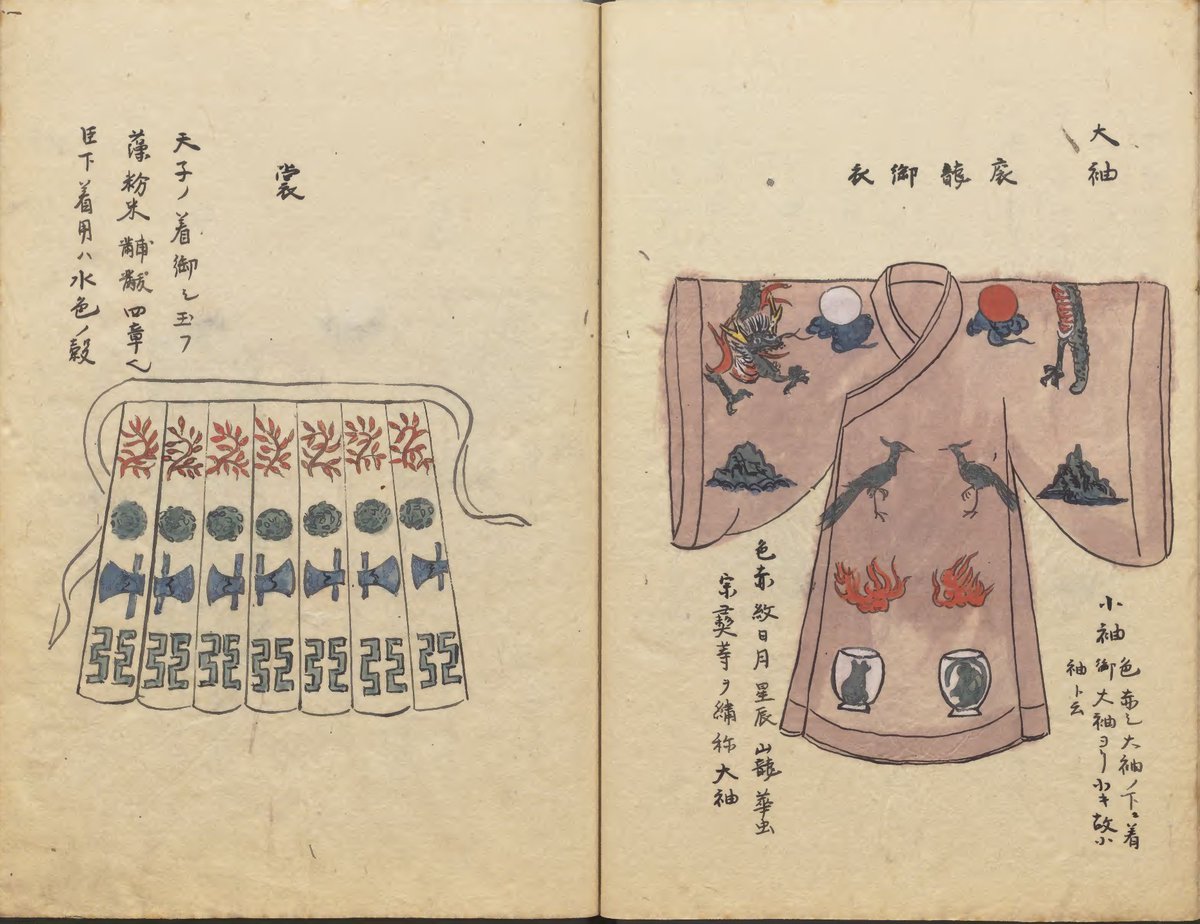 大袖
衮龍御衣
小袖
色赤シ大袖ノ下ニ着
御大袖ヨリ小キ故小
袖ト云
色赤紋日月星辰山龍華虫
宗彜等ヲ繡称大袖
裳
天子ノ着御シ玉フ
藻粉米黼黻四章也
臣下着用ハ水色ノ縠